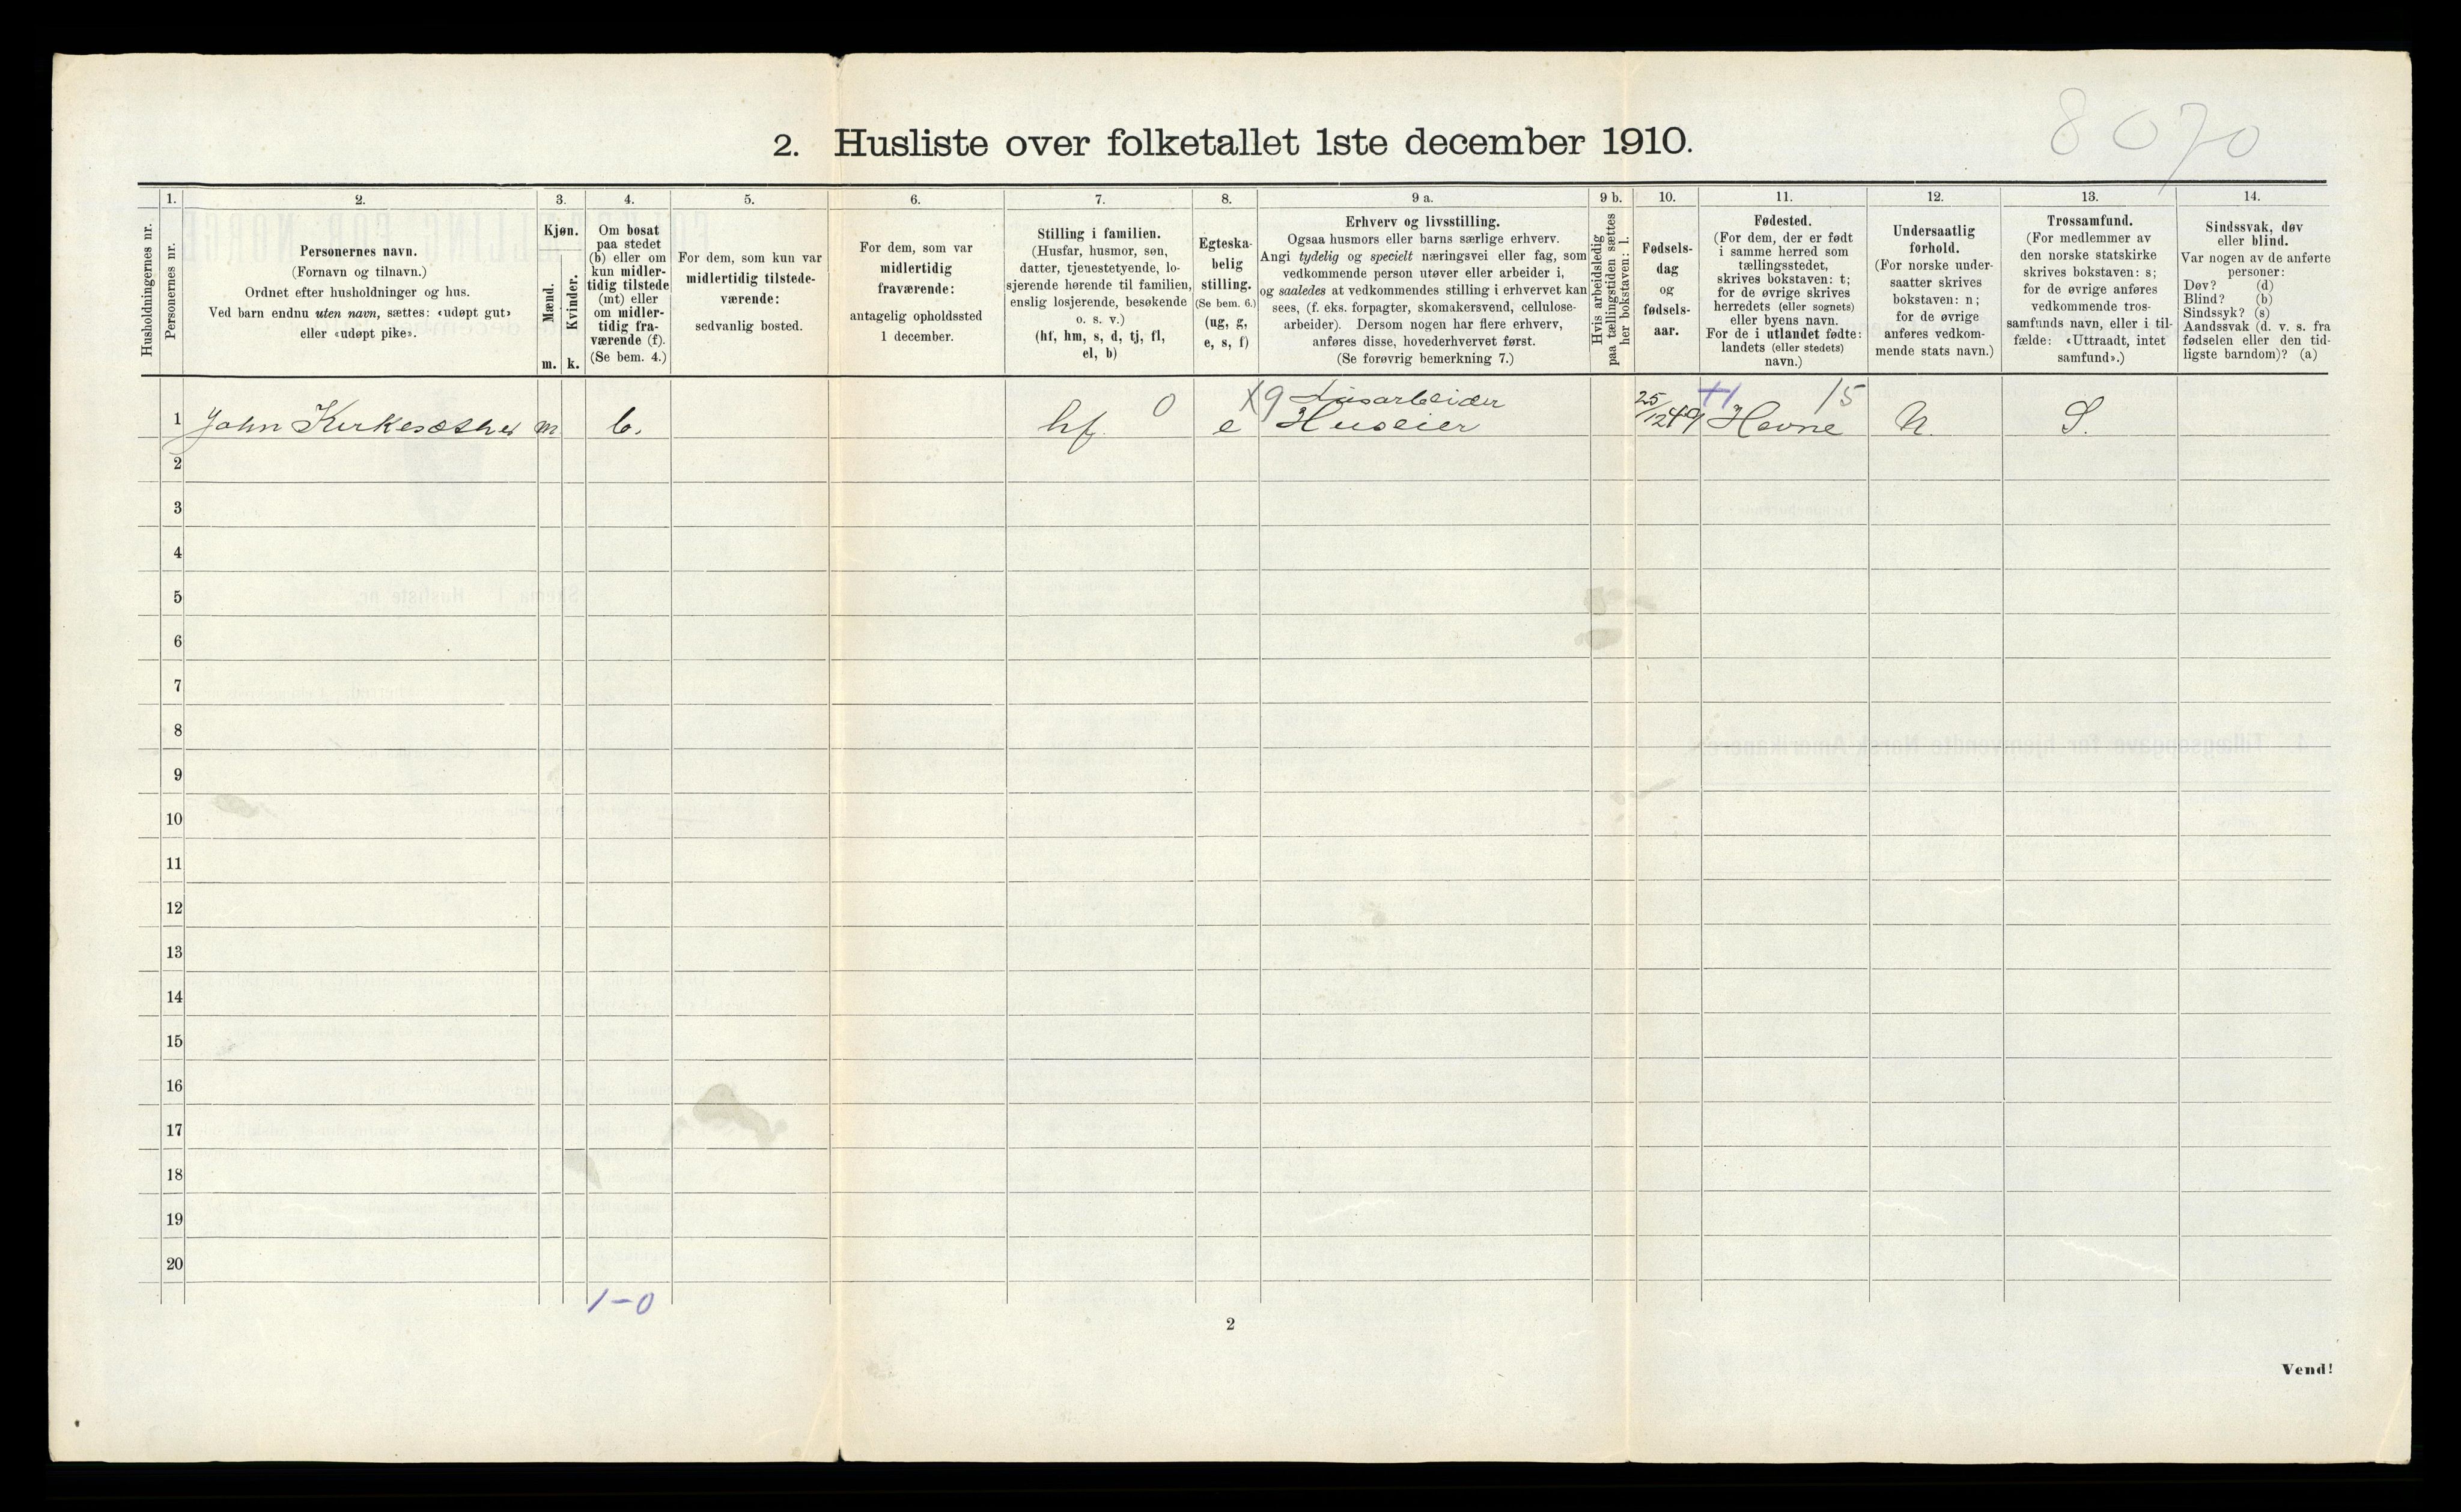 8070
2. Husliste over folketallet 1ste december 1910.
Husholdningernes nr.
1.
Personernes nr.
2.
Personernes navn.
(Fornavn og tilnavn.)
Ordnet efter husholdninger og hus.
Ved barn endnu uten navn, sættes: «udøpt gut»
eller «udøpt pike».
3.
Kjøn.
Mænd.
m.
Kvinder.
k.
4.
Om bosat
paa stedet
(b) eller om
kun midler-
tidig tilstede
(mt) eller
om midler-
tidig fra-
værende (f).
(Se bem. 4.)
5.
For dem, som kun var
midlertidig tilstede-
værende:
sedvanlig bosted.
6.
For dem, som var
midlertidig
fraværende:
antagelig opholdssted
1 december.
7.
Stilling i familien.
(Husfar, husmor, søn,
datter, tjenestetyende, lo-
sjerende hørende til familien,
enslig losjerende, besøkende
o. s. v.)
(hf, hm, s, d, tj, fl,
el, b)
8.
Egteska-
belig
stilling.
(Se bem. 6.)
(ug, g,
e, s, f)
9 a.
Erhverv og livsstilling.
Ogsaa husmors eller barns særlige erhverv.
Angi tydelig og specielt næringsvei eller fag, som
vedkommende person utøver eller arbeider i,
og saaledes at vedkommendes stilling i erhvervet kan
sees, (f. eks. forpagter, skomakersvend, cellulose-
arbeider). Dersom nogen har flere erhverv,
anføres disse, hovederhvervet først.
(Se forøvrig bemerkning 7.)
9 b.
Hvis arbeidsledig
paa tællingstiden sættes
her bokstaven: l.
10.
Fødsels-
dag
og
fødsels-
aar.
11.
Fødested.
(For dem, der er født
i samme herred som
tællingsstedet,
skrives bokstaven: t;
for de øvrige skrives
herredets (eller sognets)
eller byens navn.
For de i utlandet fødte:
landets (eller stedets)
navn.)
12.
Undersaatlig
forhold.
(For norske under-
saatter skrives
bokstaven: n;
for de øvrige
anføres vedkom-
mende stats navn.)
13.
Trossamfund.
(For medlemmer av
den norske statskirke
skrives bokstaven: s;
for de øvrige anføres
vedkommende tros-
samfunds navn, eller i til-
fælde: «Uttraadt, intet
samfund».)
14.
Sindssvak, døv
eller blind.
Var nogen av de anførte
personer:
Døv? (d)
Blind? (b)
Sindssyk? (s)
Aandssvak (d. v. s. fra
fødselen eller den tid-
ligste barndom)? (a)
0 X9 25 15
1 John Kirkesæther m b. hf. e Huseier 25/12 49 Hevne N. S.
2
3
4
5
6
7
8
9
10
11
12
13
14
15
16
17
18
19
20
1-0
2
Vend!